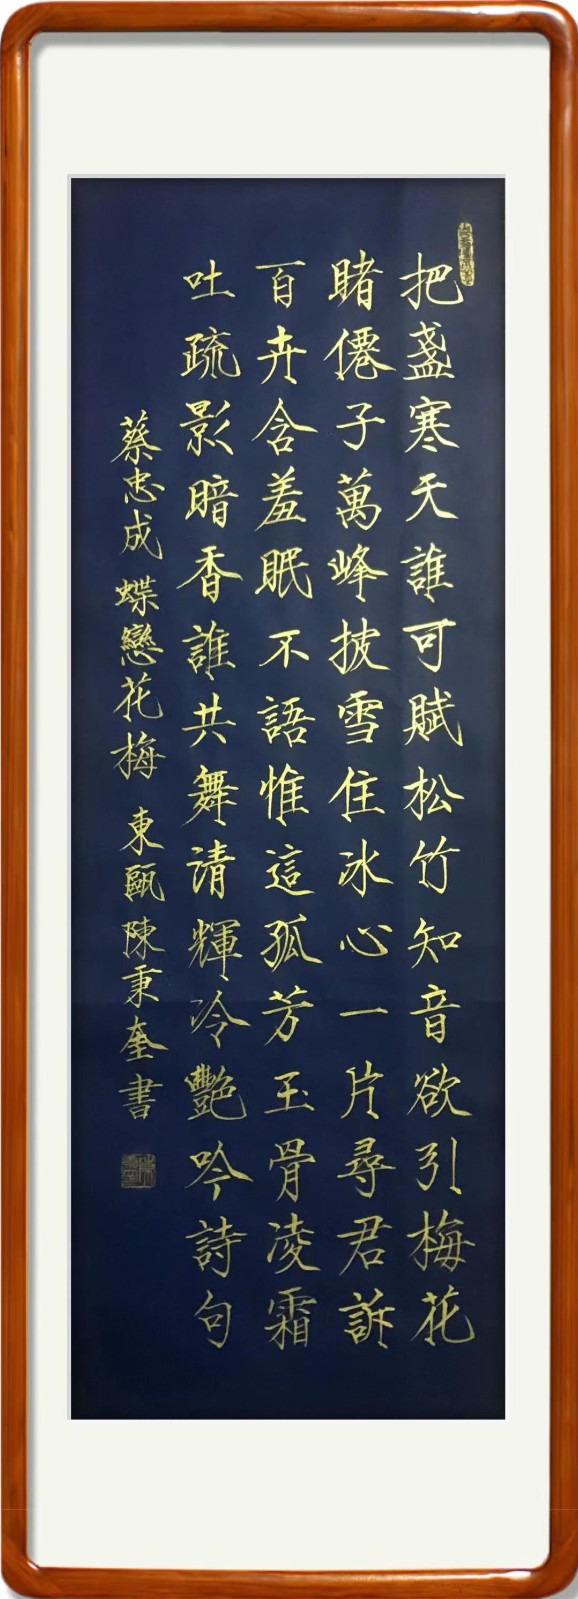 把盞寒天誰可賦松竹知音欲引梅花
睹僊子萬峰披雪住冰心一片尋君訴
百卉含羞眠不語惟這孤芳玉骨凌霜
吐疏影暗香誰共舞清輝冷艷吟詩句
蔡忠成蝶戀花梅 東甌陳秉奎書